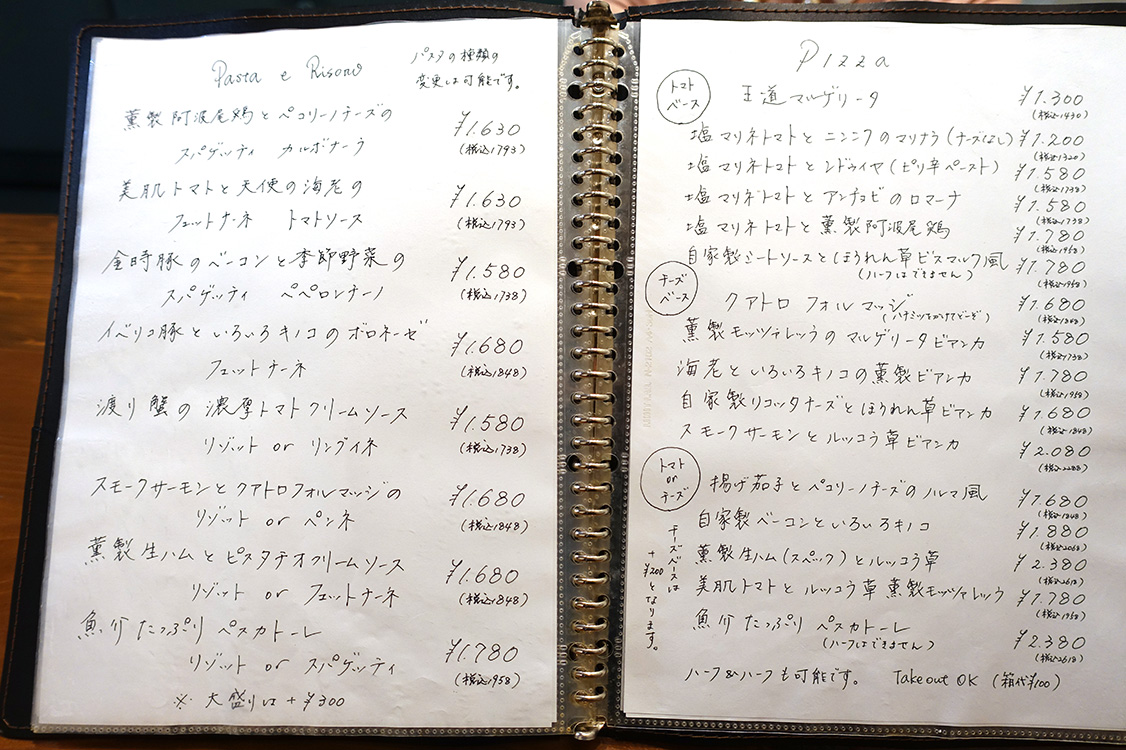 Pasta e Risotto
パスタの種類の
変更も可能です。
薫製阿波尾鶏とペコリーノチーズの
スパゲッティ カルボナーラ ¥1.630
(税込1793)
美肌トマトと天使の海老の
フェットチーネ トマトソース ¥1.630
(税込1793)
金時豚のベーコンと季節野菜の
スパゲッティ ペペロンチーノ ¥1.580
(税込1738)
イベリコ豚といろいろキノコのボロネーゼ
フェットチーネ ¥1.680
(税込1848)
渡り蟹の濃厚トマトクリームソース
リゾット or リングイネ ¥1.580
(税込1738)
スモークサーモンとクアトロフォルマッジの
リゾット or ペンネ ¥1.680
(税込1848)
薫製生ハムとピスタチオクリームソース
リゾット or フェットチーネ ¥1.680
(税込1848)
魚介たっぷり ペスカトーレ
リゾット or スパゲッティ ¥1.780
(税込1958)
※大盛りは+¥300
Pizza
トマトベース
王道マルゲリータ ¥1.300
(税込1430)
塩マリネトマトとニンニクのマリナラ(チーズなし) ¥1.200
(税込1320)
塩マリネトマトとンドゥイヤ(ピリ辛ペースト) ¥1.580
(税込1738)
塩マリネトマトとアンチョビのロマーナ ¥1.580
(税込1738)
塩マリネトマトと薫製阿波尾鶏 ¥1.780
(税込1958)
自家製ミートソースとほうれん草ビスマルク風 ¥1.780
(ハーフはできません) (税込1958)
チーズベース
クアトロ フォルマッジ ¥1.680
(ハチミツをかけてどーぞ) (税込1848)
薫製モッツァレッラのマルゲリータビアンカ ¥1.580
(税込1738)
海老といろいろキノコの薫製ビアンカ ¥1.780
(税込1958)
自家製リコッタチーズとほうれん草ビアンカ ¥1.680
(税込1848)
スモークサーモンとルッコラ草ビアンカ ¥2.080
(税込2288)
トマト or チーズ
チーズベースは
+¥200となります。
揚げ茄子とペコリーノチーズのノルマ風 ¥1.680
(税込1848)
自家製ベーコンといろいろキノコ ¥1.880
(税込2068)
薫製生ハム(スペック)とルッコラ草 ¥2.380
(税込2618)
美肌トマトとルッコラ草薫製モッツァレッラ ¥1.780
(税込1958)
魚介たっぷり ペスカトーレ ¥2.380
(ハーフはできません) (税込2618)
ハーフ&ハーフも可能です。 Take out OK (箱代¥100)